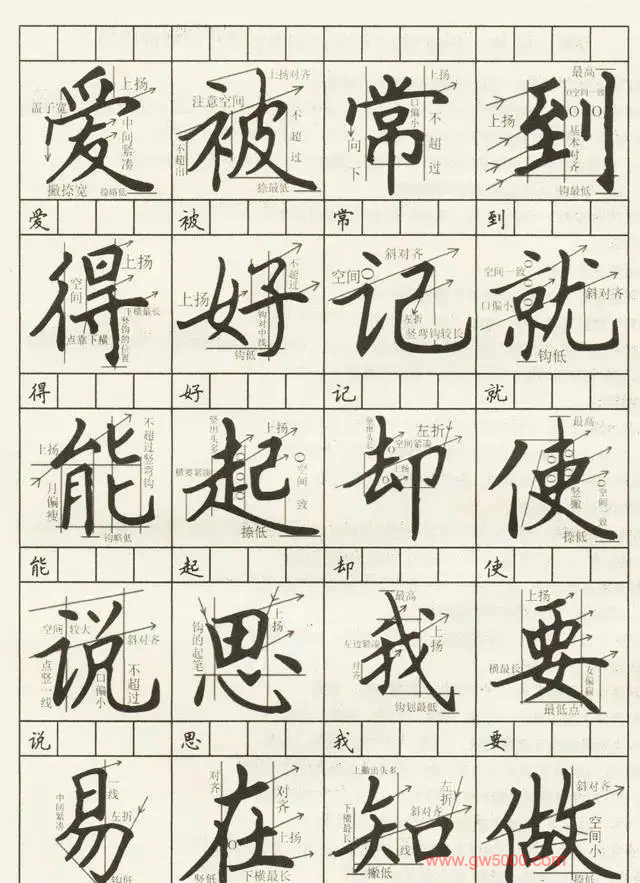 爱
上扬
盖子宽
中间紧凑
撇捺宽
捺略低
被
上扬对齐
注意空间
不超过
不超出
捺最低
常
上扬
口偏小
不超过
向下
到
最高
空间一致
上扬
基本对齐
钩最低
爱 被 常 到
得
上扬
空间
下横最长
点靠下横
竖钩的位置
好
不超过
上扬
钩对中线
钩低
记
斜对齐
空间
左折
竖弯钩较长
就
空间一致
口偏小
斜对齐
钩低
得 好 记 就
能
上扬
不超过竖弯钩
月偏瘦
钩略低
起
竖出头多
横要紧凑
空间一致
捺低
却
竖出头长
左折
空间紧凑
上扬
使
最高
竖撇
空间一致
捺低
能 起 却 使
说
空间较大
斜对齐
点竖一线
口偏小
不超过
思
钩的起笔
上扬
我
最高
左边紧凑
上扬
对齐
钩划最低
要
上扬
横最长
女偏扁
最低点
说 思 我 要
易
一线
中间紧凑
左折
钩低
在
对齐
对齐
上扬
竖低
下横最长
知
上撇出头多
左折
下横最长
斜对齐
一线
撇低
做
斜对齐
空间小
捺低
www.gw5000.com